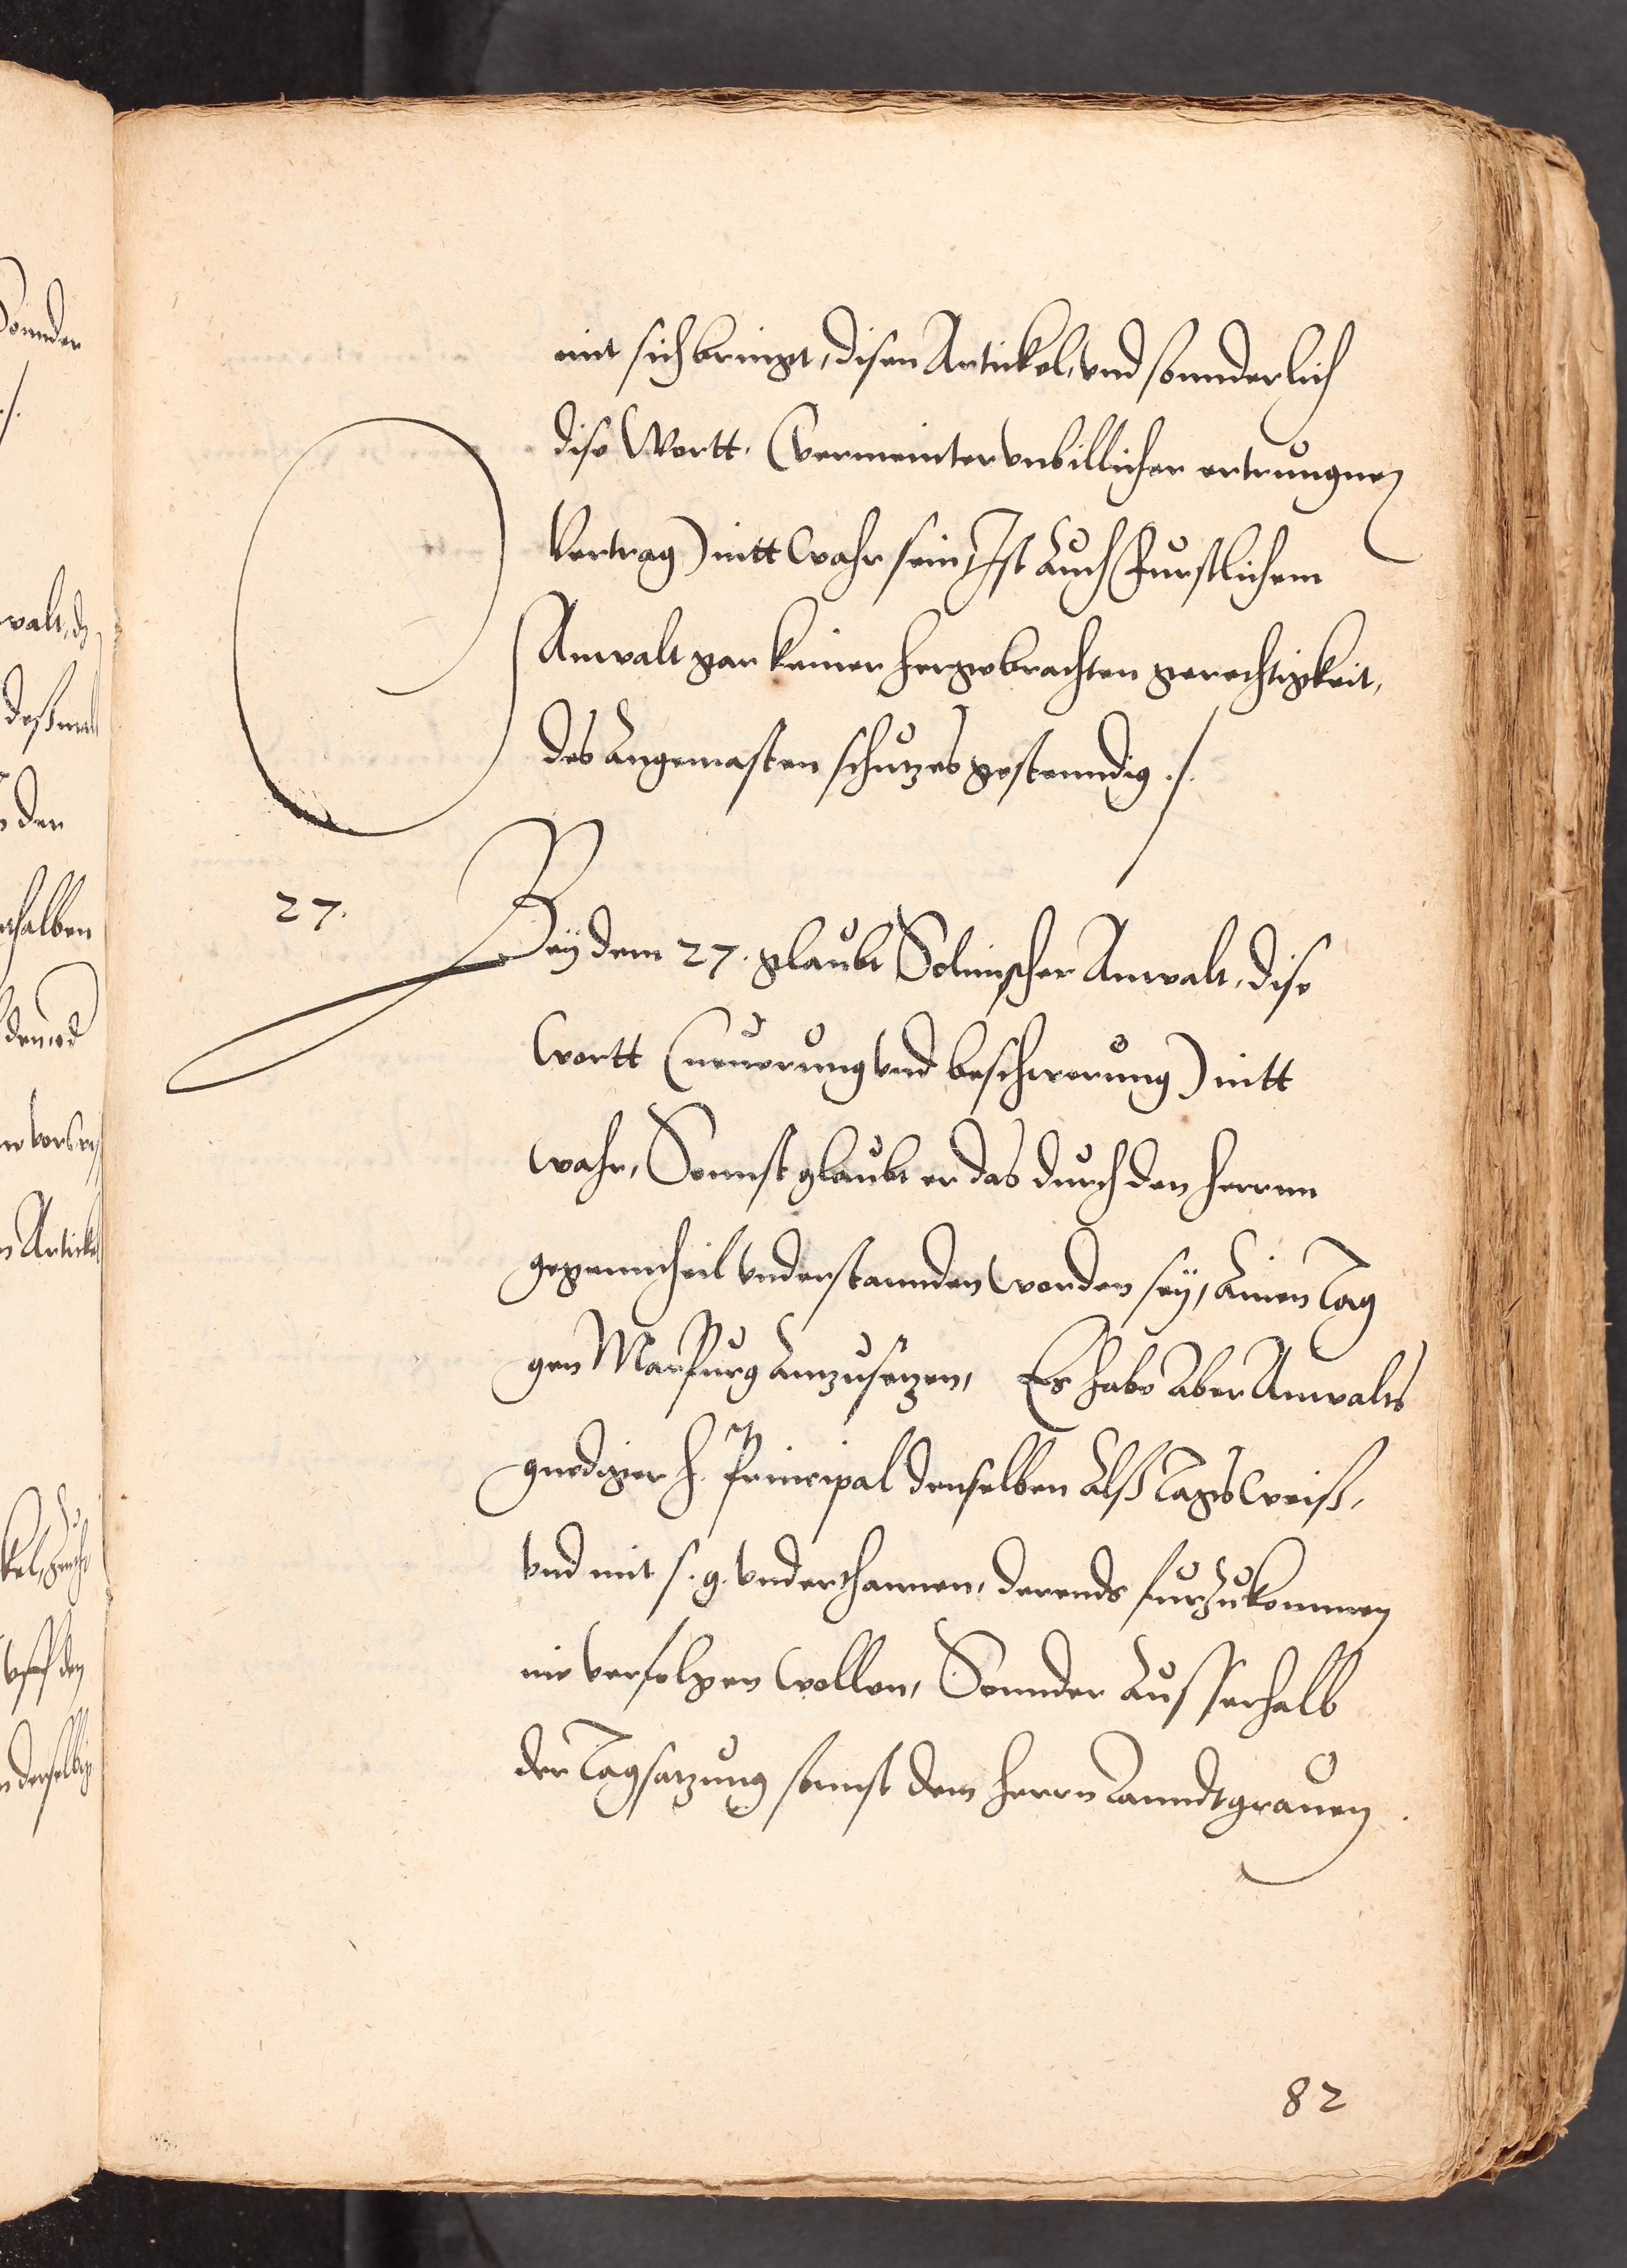 mit sich bringet, disen Artickel, und sonnderlich
dise Wortt. (vermeinter unbillicher ertrungnen
Vertrag) nitt wahr sein, Ist auch Furstlichem
Anwalt gar keiner hergebrachten gerechtigkeit,
des angemasten schutzes gestenndig ./.
27.
Bey dem 27. glaubt Solmischer Anwalt, dise
wortt (neuerung und beschwerung) nitt
wahr, Sonnst glaubt er das durch den herrnn
gegenntheil understannden worden sey, Ainen Tag
gen Marpurg anzusetzen, Es habe aber Anwalts
gnediger h. Principal denselben alß Tagsweiß,
und mit s. g. underthannen, derends furzukommen
nie verfolgen wollen, Sonnder ausserhalb
der Tagsatzung sonnst dem herrn Lanndtgrauen
82
Sonnder
./.
walt, dz
deßmal
den
halben
Artickel
den